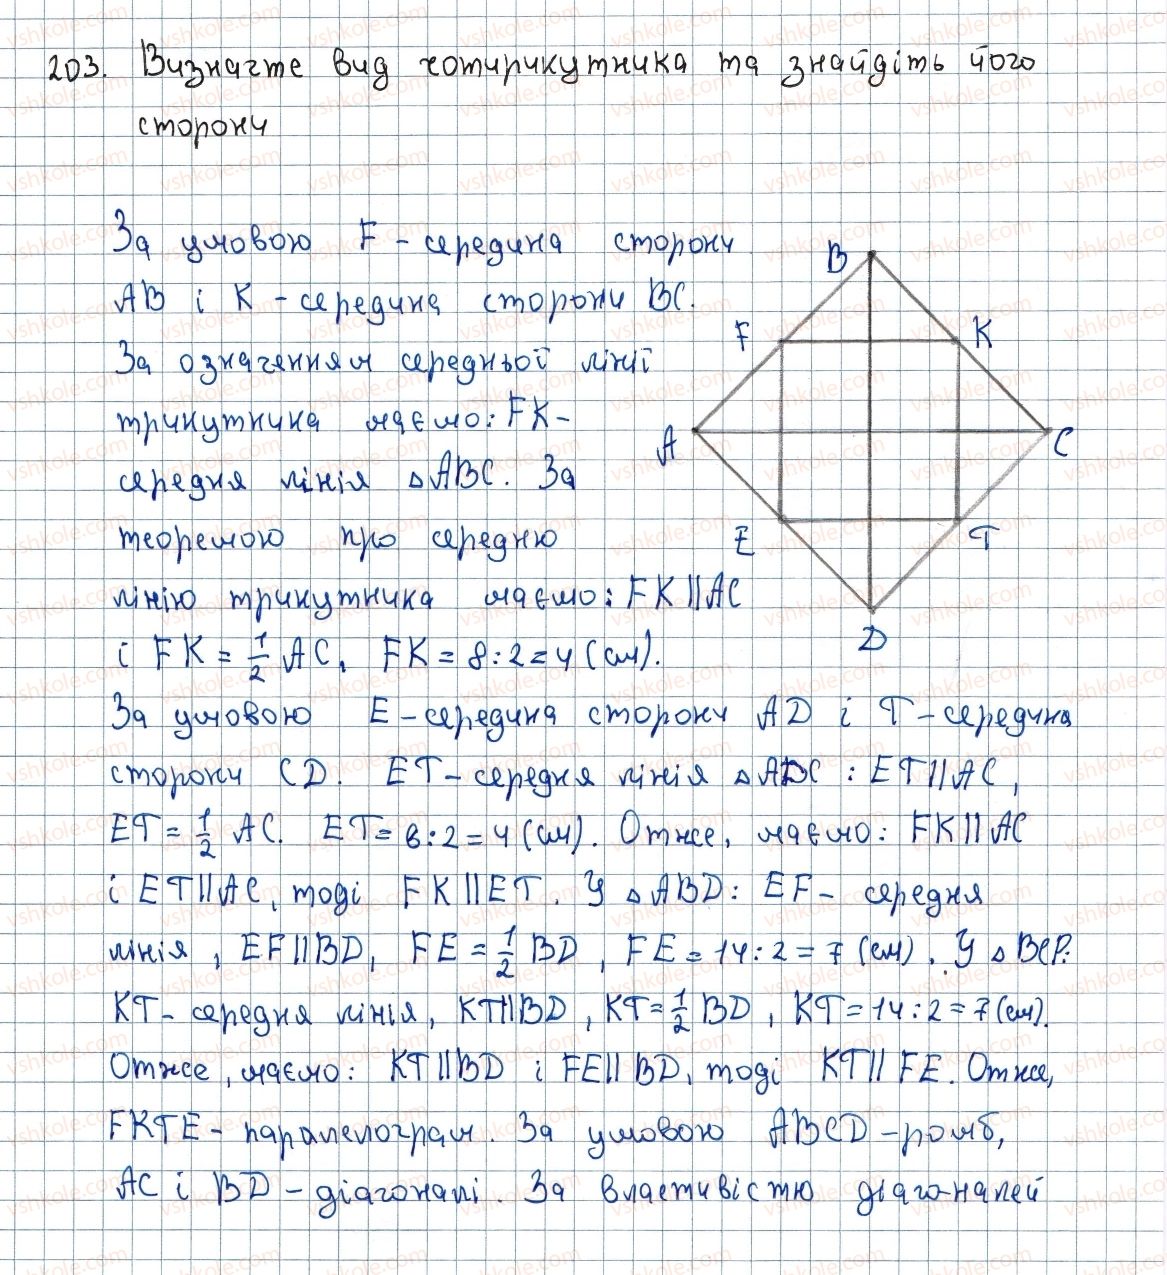 203. Визначте вид чотирикутника та знайдіть його
сторони
За умовою F - середина сторони
AB і K - середина сторони BC.
За означенням середньої лінії
трикутника маємо: FK -
середня лінія △ABC. За
теоремою про середню
лінію трикутника маємо: FK || AC
і FK = 1/2 AC, FK = 8 : 2 = 4 (см).
B
F
K
A
C
E
T
D
За умовою E - середина сторони AD і T - середина
сторони CD. ET - середня лінія △ADC : ET || AC,
ET = 1/2 AC. ET = 8 : 2 = 4 (см). Отже, маємо: FK || AC
і ET || AC, тоді FK || ET. У △ABD: EF - середня
лінія, EF || BD, FE = 1/2 BD, FE = 14 : 2 = 7 (см). У △BCD:
KT - середня лінія, KT || BD, KT = 1/2 BD, KT = 14 : 2 = 7 (см).
Отже, маємо: KT || BD і FE || BD, тоді KT || FE. Отже,
FKTE - паралелограм. За умовою ABCD - ромб,
AC і BD - діагоналі. За властивістю діагоналей
vshkole.com